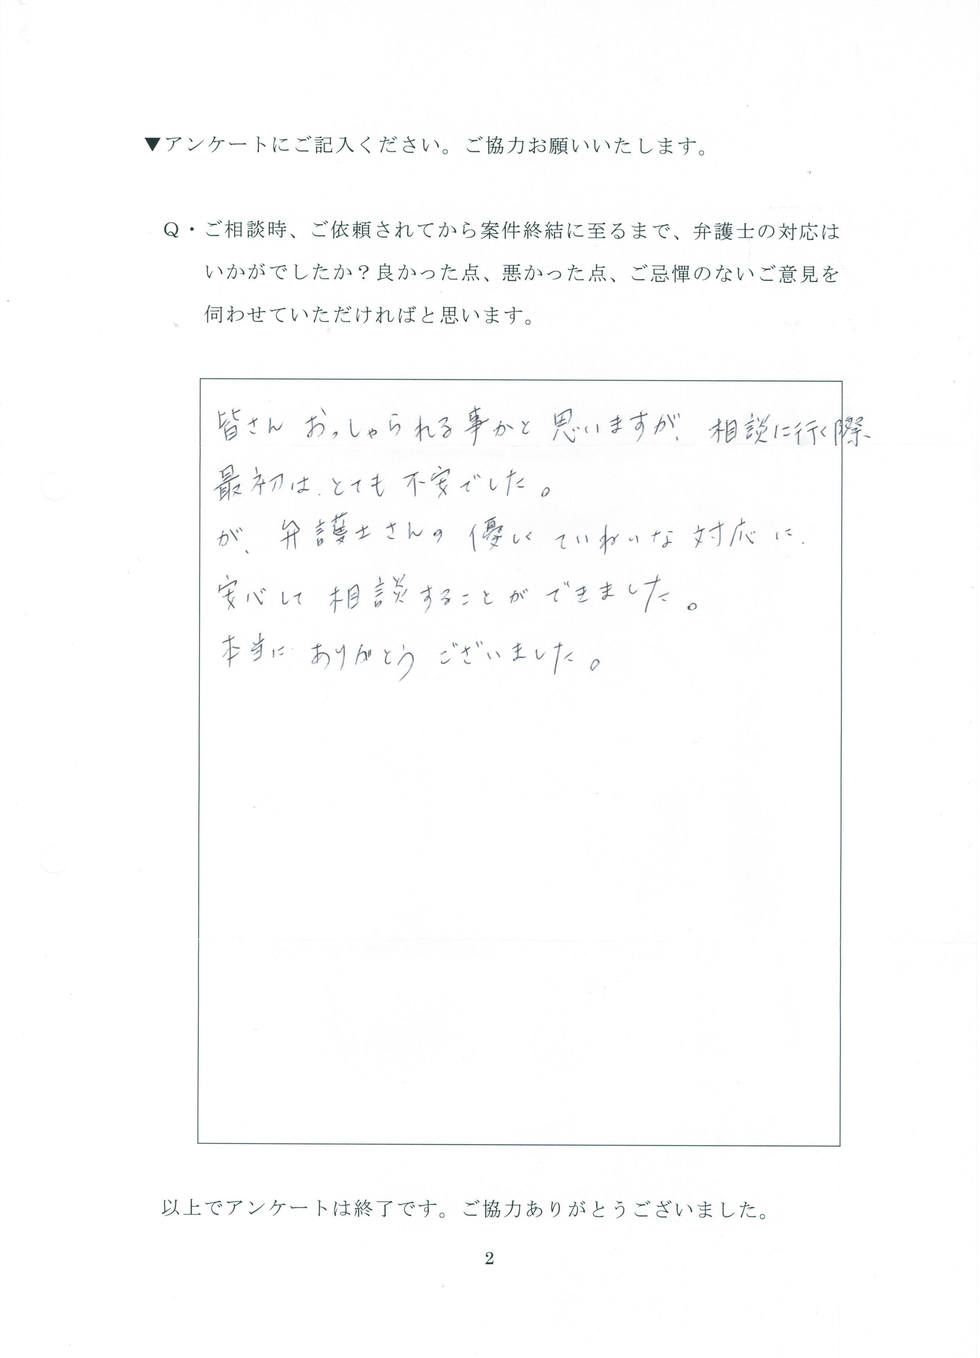 ▼アンケートにご記入ください。ご協力お願いいたします。
Q・ご相談時、ご依頼されてから案件終結に至るまで、弁護士の対応は
いかがでしたか？良かった点、悪かった点、ご忌憚のないご意見を
伺わせていただければと思います。
皆さん おっしゃられる事かと思いますが、相談に行く際、
最初は、とても不安でした。
が、弁護士さんの優しくていねいな対応に、
安心して相談することができました。
本当に ありがとうございました。
以上でアンケートは終了です。ご協力ありがとうございました。
2